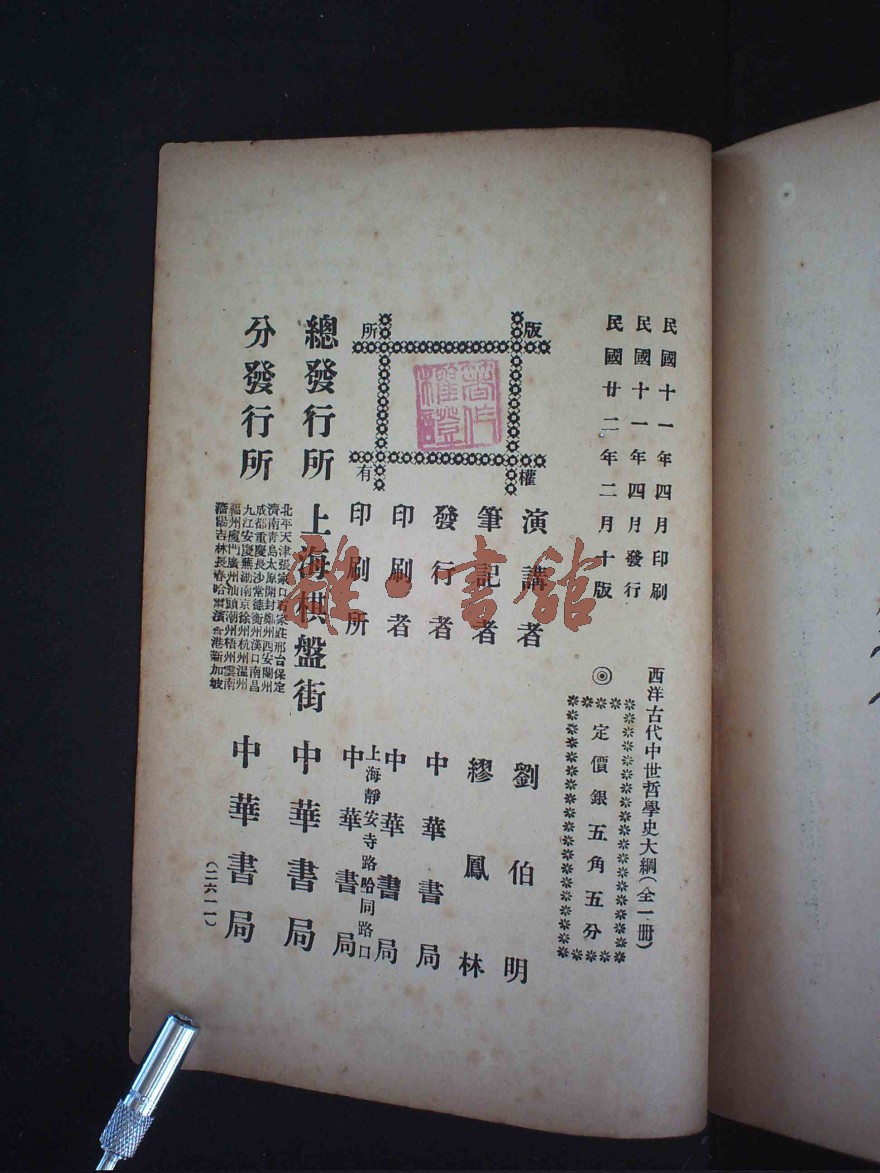 民國十一年四月印刷
民國十一年四月發行
民國廿二年二月十版
西洋古代中世哲學史大綱(全一冊)
◎定價銀五角五分
版權所有
著作權證
演講者 劉伯明
筆記者 繆鳳林
發行者 中華書局
印刷者 中華書局
印刷所 上海靜安寺路哈同路口 中華書局
總發行所 上海棋盤街 中華書局
分發行所
北平天津張家口石家莊邢台保定
濟南青島太原開封鄭州西安蘭州
成都重慶長沙常德衡州漢口南昌
九江安慶蕪湖南京徐州杭州溫州
福州廈門廣州汕頭潮州梧州雲南
瀋陽吉林長春哈爾濱香港新加坡
中華書局
(二六一一)
雜·書館